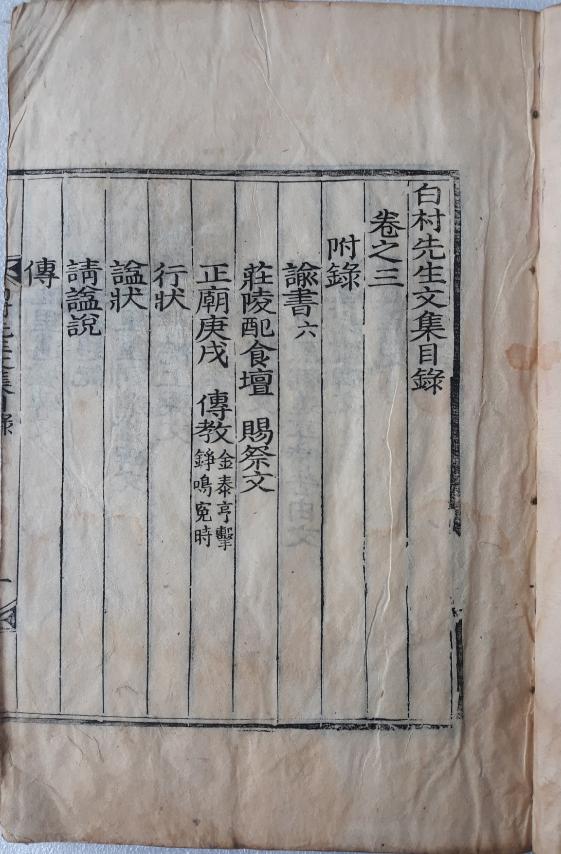 白村先生文集目錄
卷之三
附錄
諭書六
莊陵配食壇 賜祭文
正廟庚戌 傳教金泰亨擊錚鳴寃時
行狀
諡狀
請諡說
傳